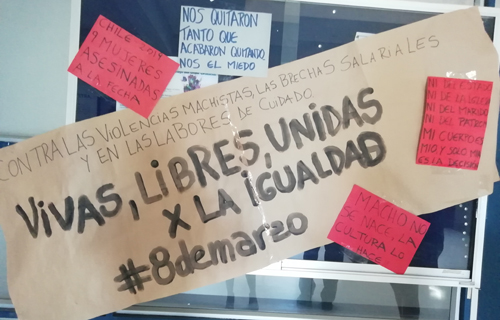 NOS QUITARON
TANTO QUE
ACABARON QUITANDO
NOS EL MIEDO
CHILE 2019
9 MUJERES
ASESINADAS
A LA FECHA
CONTRA LAS VIOLENCIAS MACHISTAS, LAS BRECHAS SALARIALES
Y EN LAS LABORES DE CUIDADO.
VIVAS, LIBRES, UNIDAS
X LA IGUALDAD
#8demarzo
NI DEL ESTADO
NI DE LA IGLESIA
NI DEL MARIDO
NI DEL PATRON
MI CUERPO ES
MIO, Y SOLO MIA
ES LA DECISION
MACHO NO
SE NACE, LA
CULTURA LO
HACE